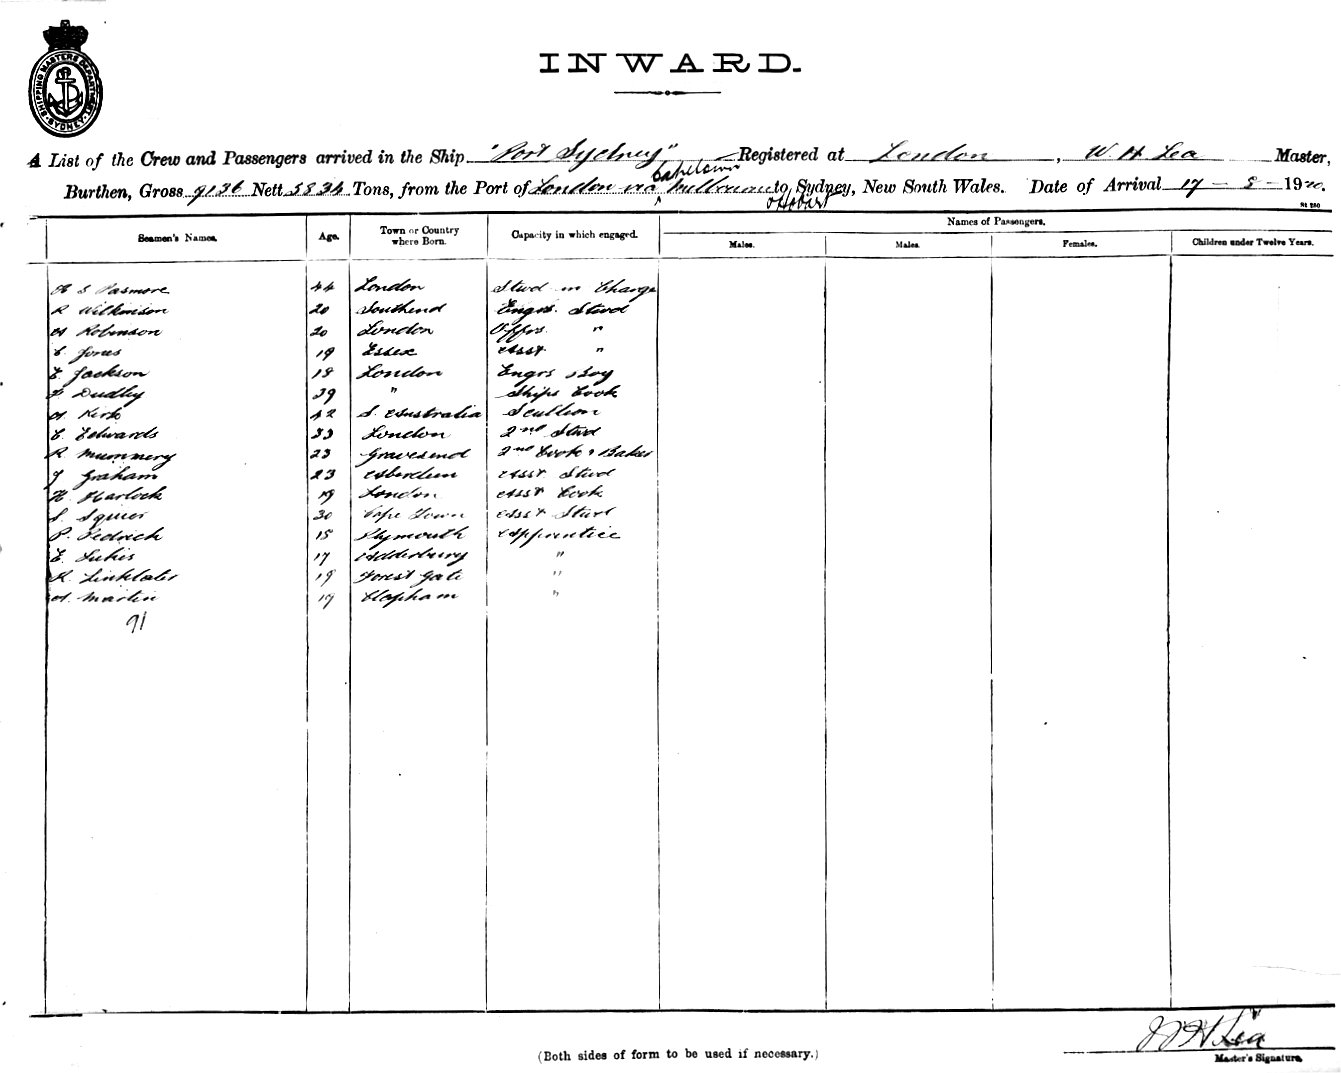 SHIPPING MASTERS DEPARTMENT SYDNEY
INWARD.
A List of the Crew and Passengers arrived in the Ship "Port Sydney" Registered at London, W. H. Lea Master,
Capetown
Burthen, Gross 9136 Nett 5834 Tons, from the Port of London via Melbourne to Sydney, New South Wales. Date of Arrival 17 - 8 - 1920.
& Hobart
Seamen's Names. Age. Town or Country where Born. Capacity in which engaged. Names of Passengers.
Males. Males. Females. Children under Twelve Years.
H S Pasmore 44 London Stwd in Charge
R Wilkinson 20 Southend Engrs. Stwd
A Robinson 20 London Offrs. "
C Jones 19 Essex Asst "
E. Jackson 18 London Engrs Boy
F Dudley 39 " Ships Cook
A. Kirk 42 S. Australia Scullion
C. Edwards 33 London 2nd Stwd
R Mummery 23 Gravesend 2nd Cook & Baker
J Graham 23 Aberdeen Asst Stwd
H. Harlock 19 London Asst Cook
S. Squier 30 Cape Town Asst Stwd
P. Pedrick 15 Plymouth Apprentice
E. Lukis 17 Adderbury "
K. Linklater 19 Forest Gate "
A. Martin 19 Clapham "
91
W H Lea
Master's Signature.
(Both sides of form to be used if necessary.)